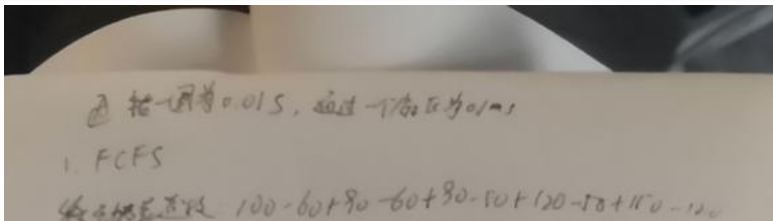 转一周为0.01s, 通过一个扇区为0.1ms
1. FCFS
100-60+90-60+90-50+120-50+150-120